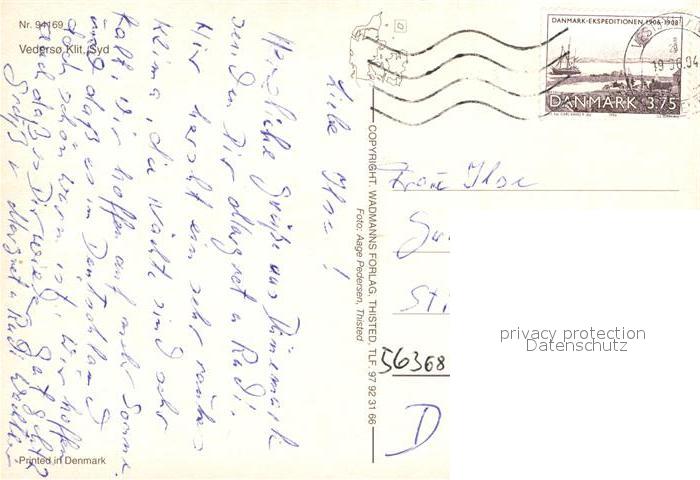 Nr. 94169
Vedersø Klit, Syd
Liebe Ilse!
Herzliche Grüße aus Dänemark
senden Dir Margret u Rudi.
Hier herscht ein sehr rauhes
Klima, die Nächte sind sehr
kalt, wir hoffen auf mehr Sonne
und daß es in Deutschland
schon warm ist. Wir hoffen
daß es Dir wieder gut geht
Margret u Rudi
Printed in Denmark
COPYRIGHT. WADMANNS FORLAG, THISTED, TLF. 97 92 31 66
Foto: Aage Pedersen, Thisted
DANMARK-EKSPEDITIONEN 1906-1908
DANMARK 3.75
Frau Ilse
56368
D
privacy protection
Datenschutz